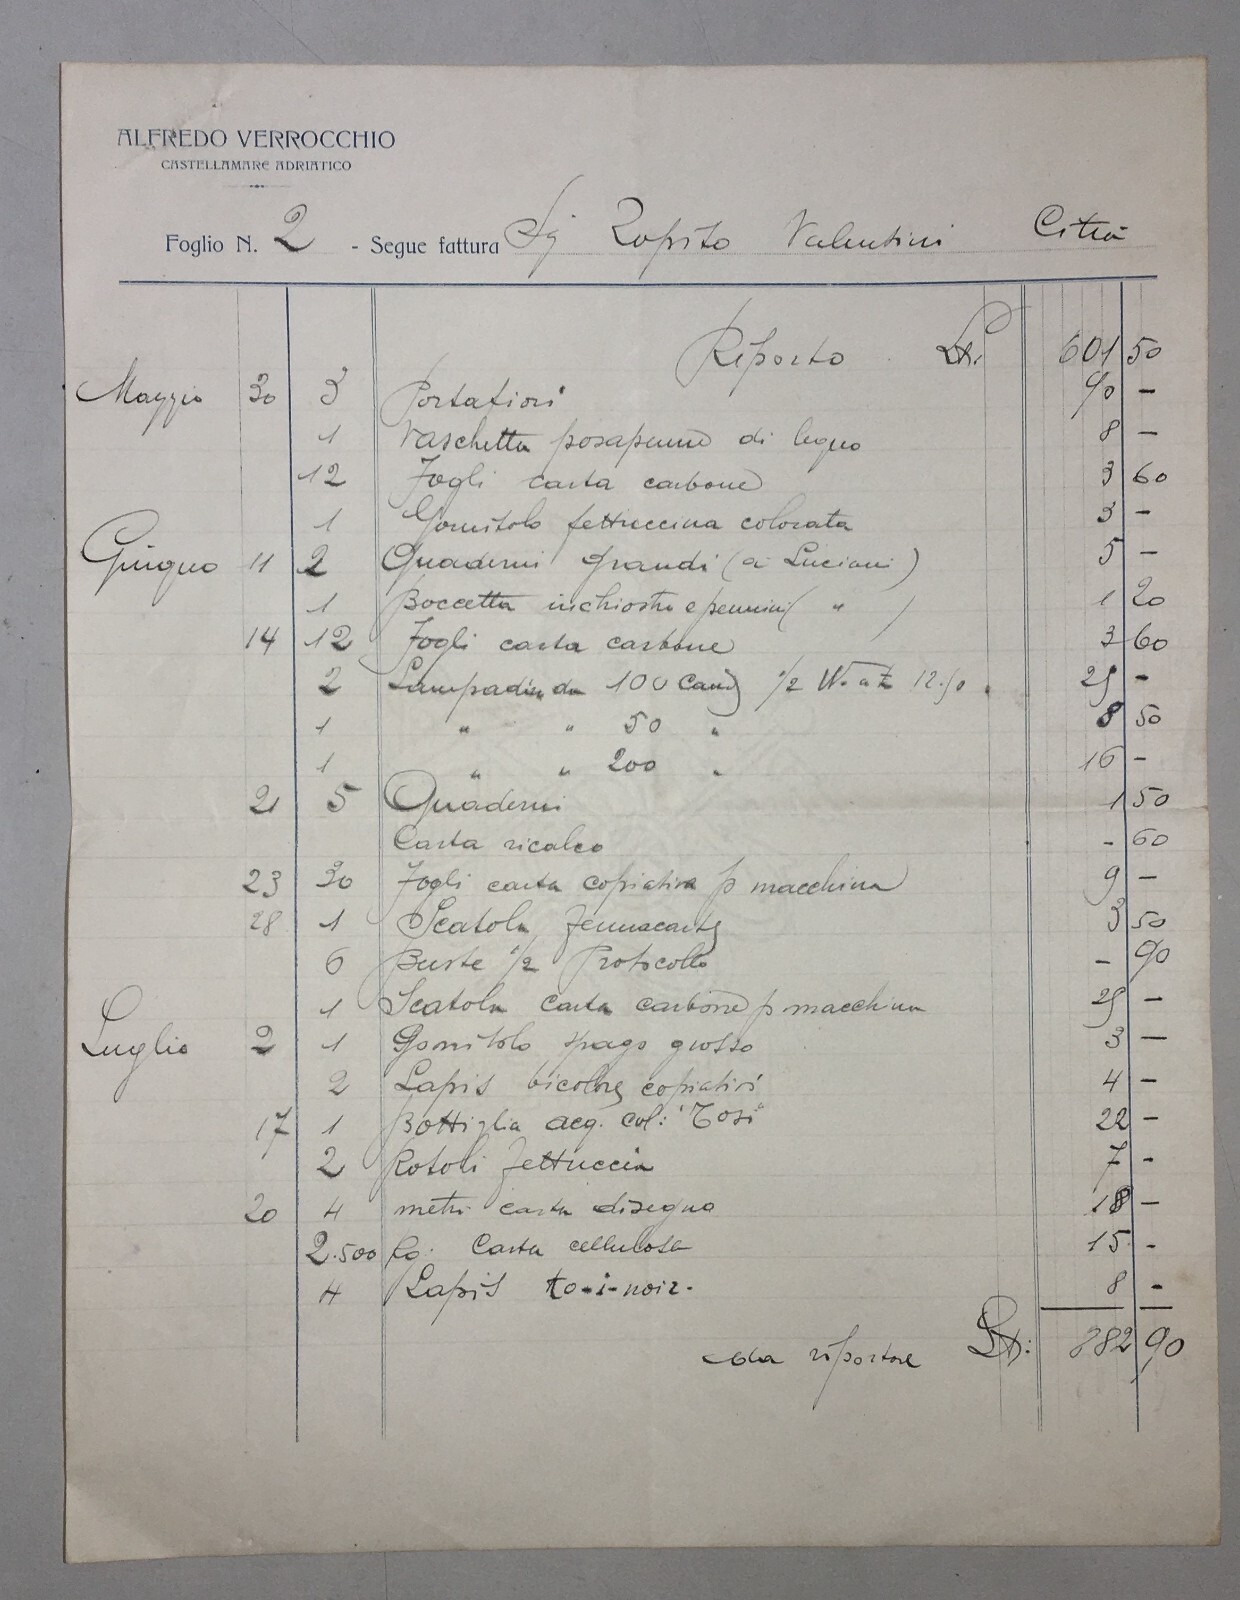 ALFREDO VERROCCHIO
CASTELLAMARE ADRIATICO
Foglio N. 2 - Segue fattura Sig Zopito Valentini Città
Riporto Lit. 601 50
Maggio 30 3 Portafiori 90 -
1 Vaschetta posapenne di legno 8 -
12 Fogli carta carbone 3 60
1 Gomitolo fettuccina colorata 3 -
Giugno 11 2 Quaderni grandi (a Luciani) 5 -
1 Boccetta inchiostro e pennini ( " ) 1 20
14 12 Fogli carta carbone 3 60
2 Lampadine da 100 Cand 1/2 Watt 12.50 25 -
1 " " 50 " 8 50
1 " " 200 " 16 -
21 5 Quaderni 1 50
Carta ricalco - 60
23 30 Fogli carta copiativa p macchina 9 -
28 1 Scatola fermacarte 3 50
6 Buste 1/2 Protocollo - 90
1 Scatola carta carbone p macchina 25 -
Luglio 2 1 Gomitolo spago grosso 3 -
2 Lapis bicolore copiativi 4 -
17 1 Bottiglia acq. col: "Tosi" 22 -
2 Rotoli fettuccia 7 -
20 4 metri carta disegno 18 -
2.500 Cg. Carta cellulosa 15 -
4 Lapis ko-i-noir. 8 -
da riportare Lit: 882 90